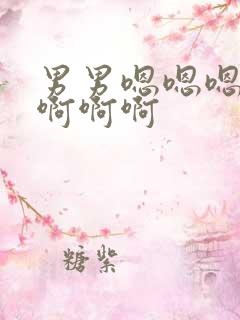 男男嗯嗯嗯
啊啊啊
糖紫